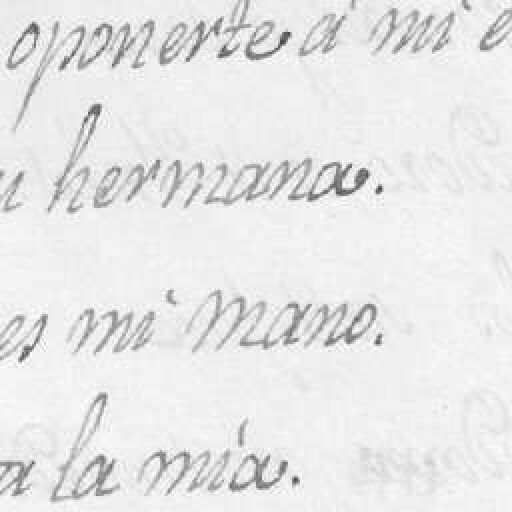 oponerte á mi
hermana.
es mi mano.
a la mía.